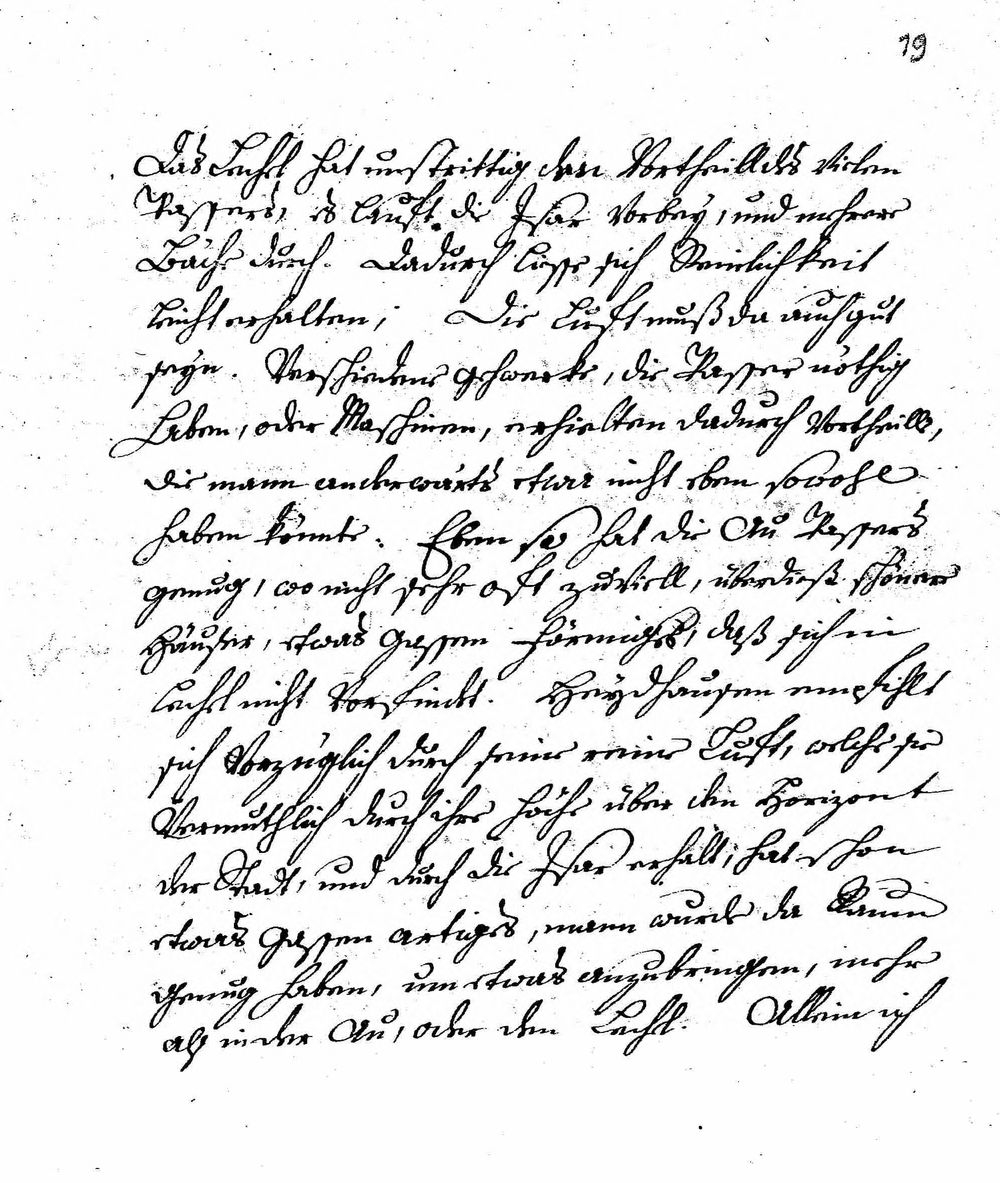 19
Das Lechel hat unstrittig den Vortheill des Vielen
Wassers, es lauft die Isar vorbey, und mehrere
Bäche durch. Dadurch liesse sich Reinlichkeit
leicht erhalten; Die Luft muß da auch gut
seyn. Verschiedene gehwerke, die Wasser nöthig
haben, oder Maschinen, erhielten dadurch Vortheille,
die mann anderwärts etwa nicht eben sowohl
haben könnte. Eben so hat die Au Wassers
genug, wo nicht sehr oft zuviell, überdieß schönere
Häuser, etwas Gassen förmiges, daß sich in
Lechel nicht Vorfindet. Heydhausen empfihlt
sich Vorzüglich durch seine reine Luft, welche sie
Vermuthlich durch ihre höche über den Horizont
der Stadt, und durch die Isar erhält; hat schon
etwas Gassen artiges, mann wurde da Raum
genug haben, um etwas anzubringen, mehr
als in der Au, oder den Lechel. Allein ich